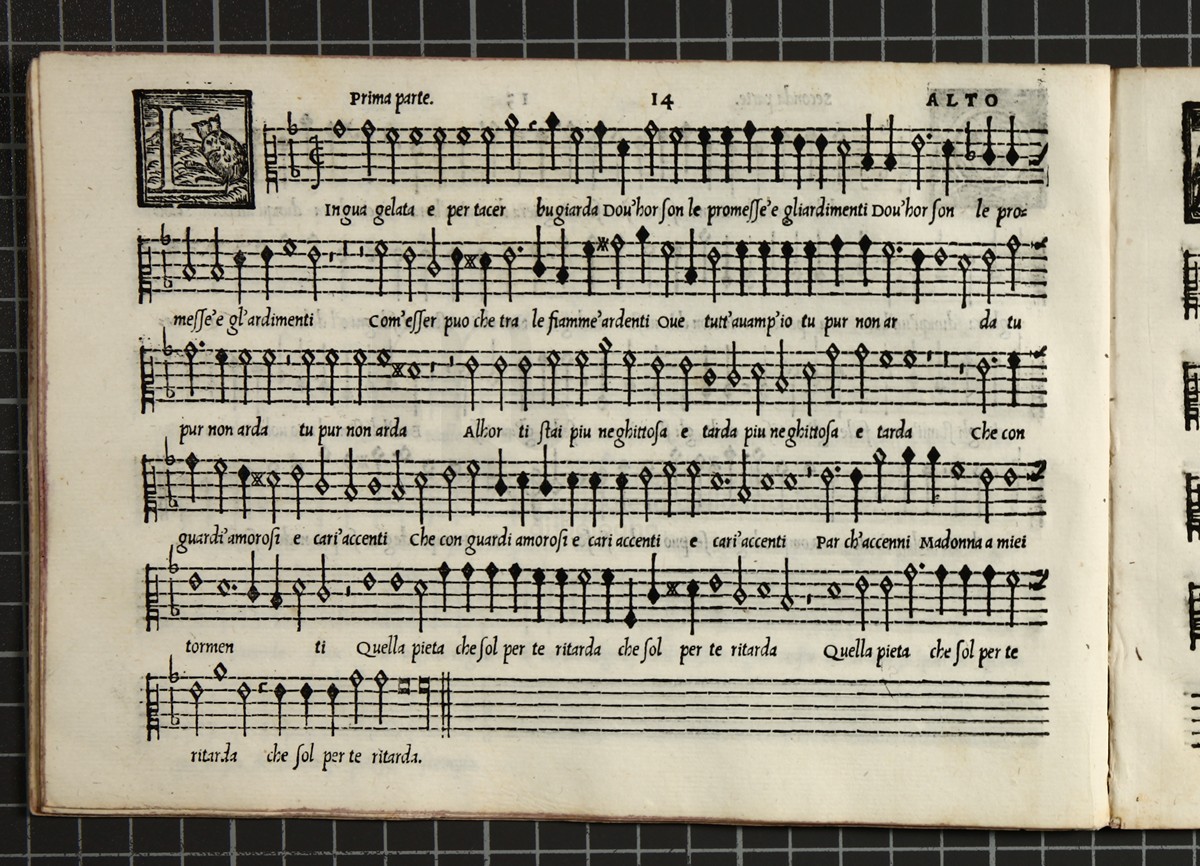 Prima parte. 14 ALTO
LIngua gelata e per tacer bugiarda Dou'hor son le promesse'e gliardimenti Dou'hor son le pro=
messe'e gl'ardimenti Com'esser puo che tra le fiamme'ardenti Oue tutt'auamp'io tu pur non ar da tu
pur non arda tu pur non arda Alhor ti stai piu neghittosa e tarda piu neghittosa e tarda Che con
guardi'amorosi e cari'accenti Che con guardi amorosi e cari accenti e cari'accenti Par ch'accenni Madonna a miei
tormen ti Quella pieta che sol per te ritarda che sol per te ritarda Quella pieta che sol per te
ritarda che sol per te ritarda.